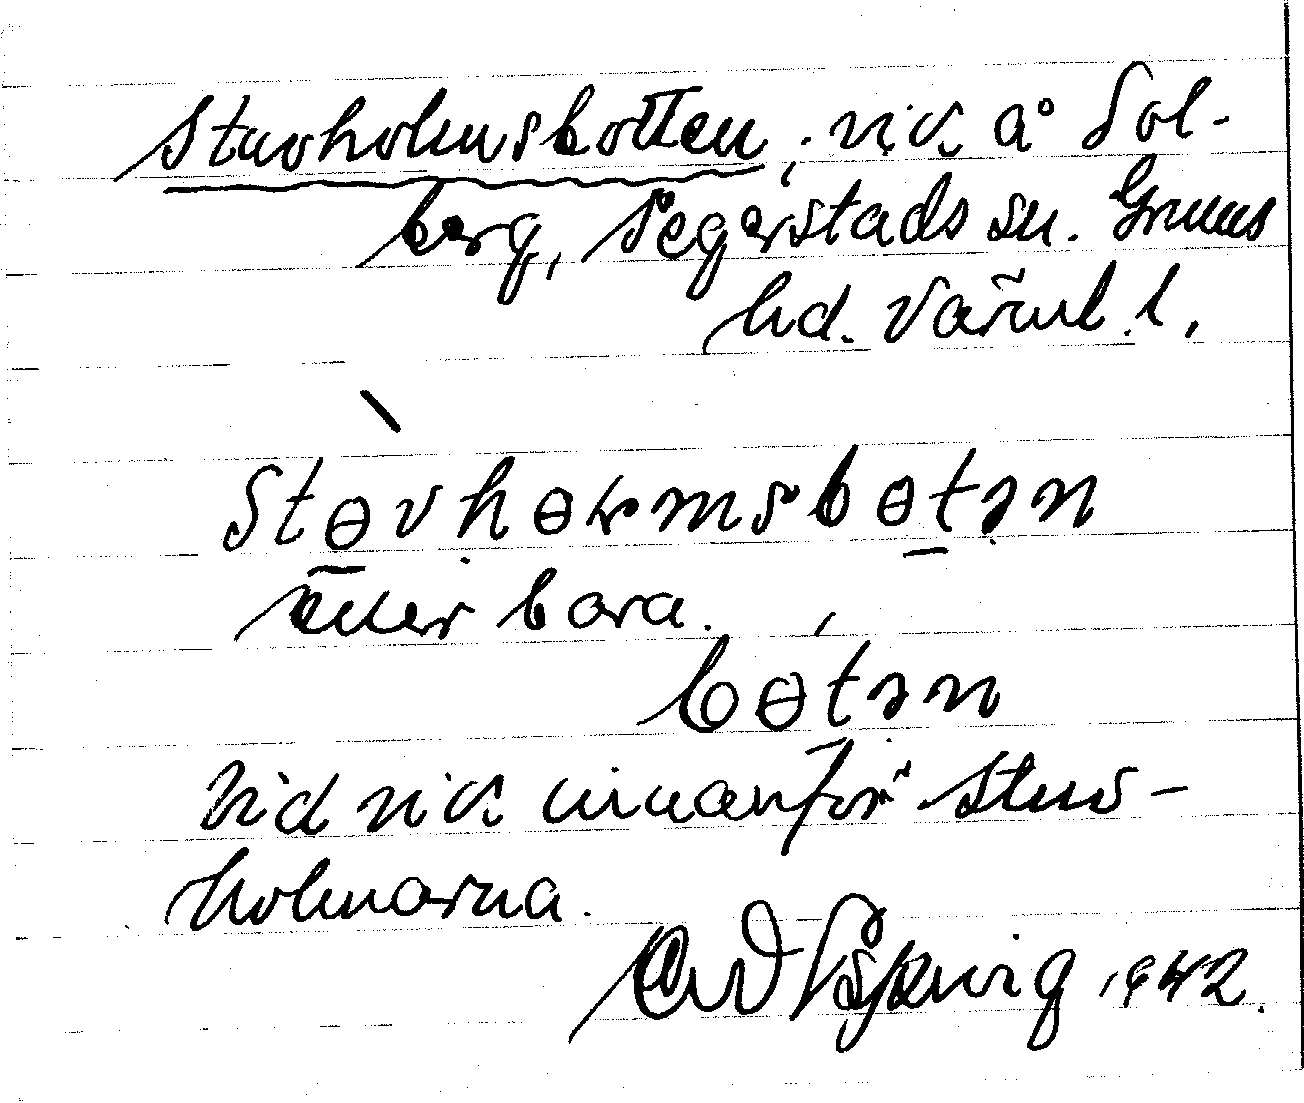 Stuvholmsbotten, vik å Sol-
berg, Segerstads sn. Grums
hd. Värml. l.
Stɵvhɵɽmsbɵtən
eller bara.
bɵtən
Vid vik innanför Stuv-
holmarna.
1942.